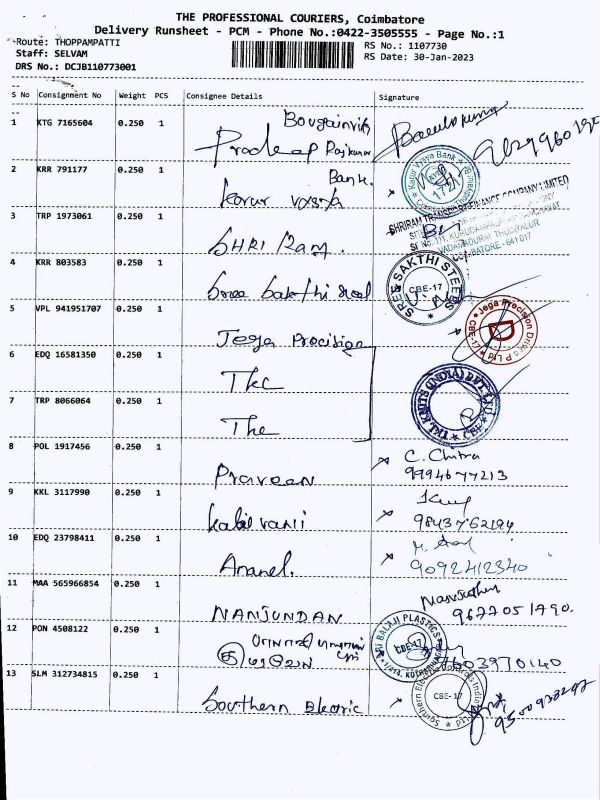 THE PROFESSIONAL COURIERS, Coimbatore
Delivery Runsheet - PCM - Phone No.:0422-3505555 - Page No.:1
Route: THOPPAMPATTI
Staff: SELVAM
DRS No.: DCJB110773001
RS No.: 1107730
RS Date: 30-Jan-2023
S No Consignment No Weight PCS Consignee Details Signature
1 KTG 7165604 0.250 1
Pradeep Rajkumar
2 KRR 791177 0.250 1 Bank.
Karur vysya
Karur Vysya Bank
3 TRP 1973061 0.250 1
SHRI Ram.
COIMBATORE - 641 017
4 KRR 803583 0.250 1
Sree Sakthi Steel
SREE SAKTHI STEELS
CBE-17
5 VPL 941951707 0.250 1
Jega Precision
Jega Precision Drives P Ltd
CBE-17
6 EDQ 16581350 0.250 1
TKC
7 TRP 8066064 0.250 1
The
TKL KNITS (INDIA) PVT. LTD
CBE
8 POL 1917456 0.250 1 C. Chitra
Praveen 9994677213
9 KKL 3117990 0.250 1
Kabilvani 9843762194
10 EDQ 23798411 0.250 1
Anand. 9092412340
11 MAA 565966854 0.250 1
NANJUNDAN 9677051790.
12 PON 4508122 0.250 1
BALAJI PLASTICS
CBE-17
13 SLM 312734815 0.250 1
Southern Electric
CBE-17